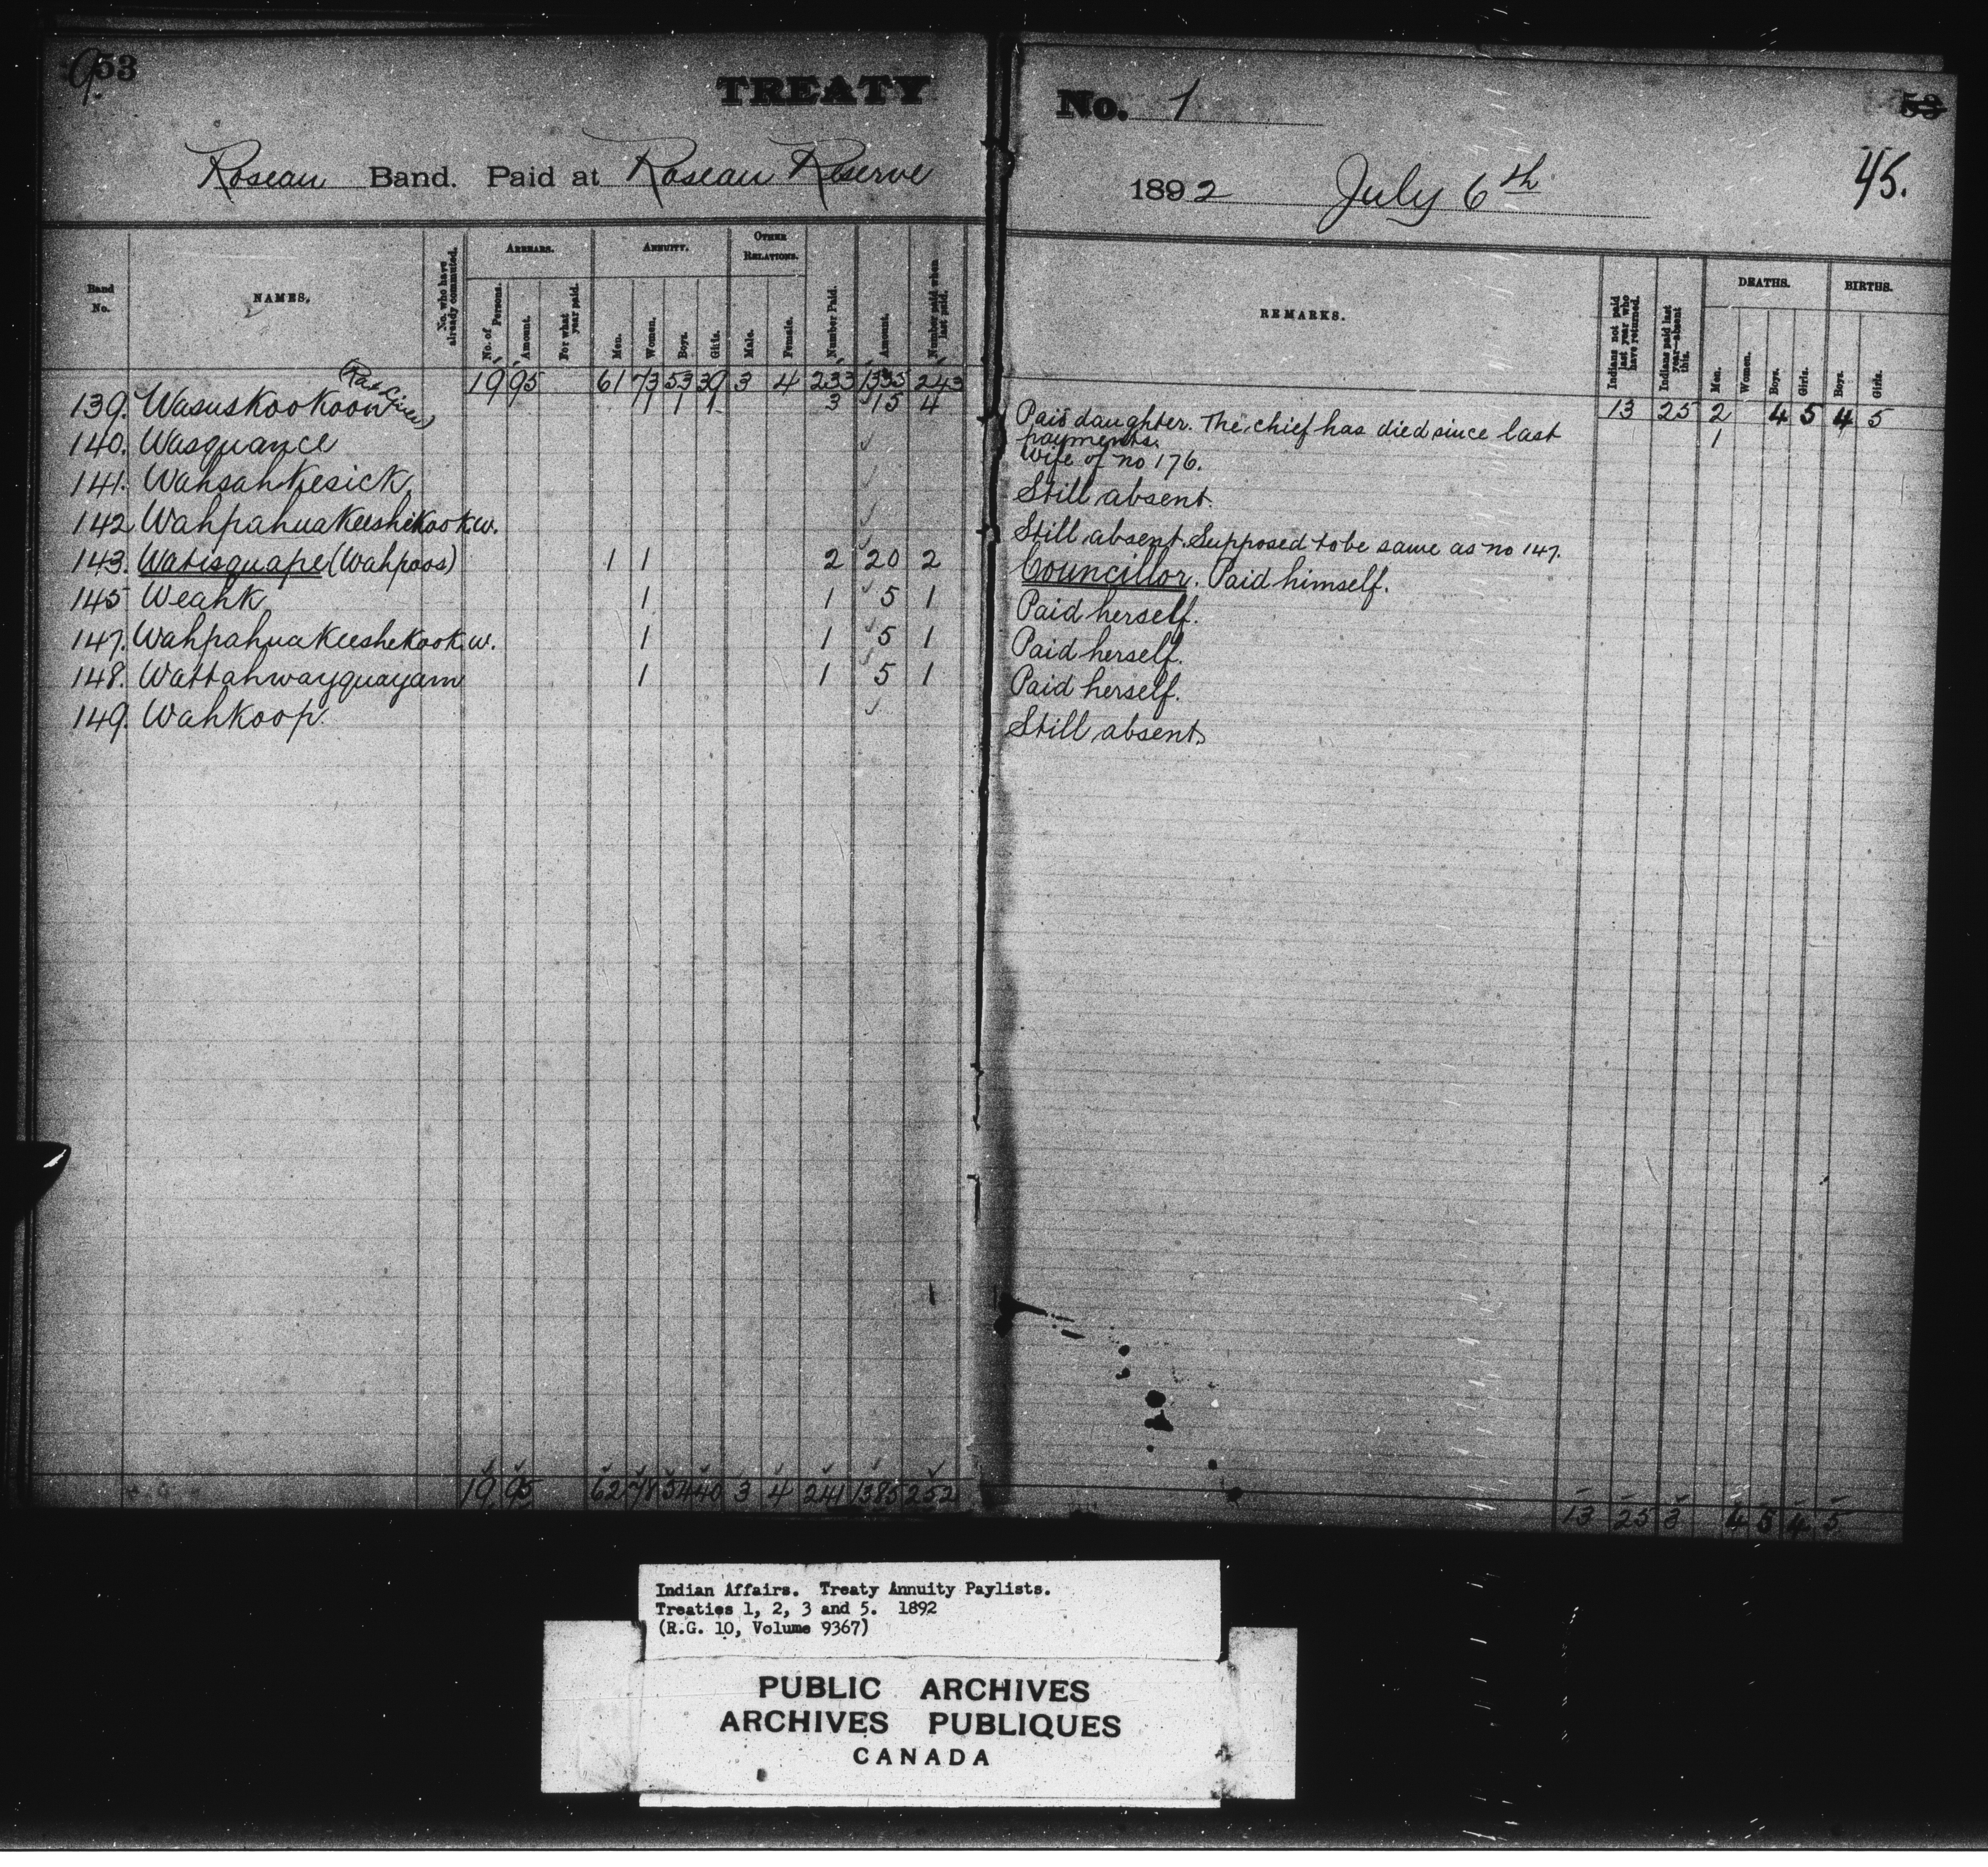 953
TREATY No. 1
53
45.
Roseau Band. Paid at Roseau Reserve 1892 July 6th
Band No.
NAMES,
No. who have already commuted.
ARREARS.
No. of Persons.
Amount.
For what year paid.
ANNUITY.
Men.
Women.
Boys.
Girls.
OTHER RELATIONS.
Male.
Female.
Number Paid.
Amount.
Number paid when last paid.
REMARKS.
Indians not paid last year who have returned.
Indians paid last year—absent this.
DEATHS.
Men.
Women.
Boys.
Girls.
BIRTHS.
Boys.
Girls.
19 95 61 73 53 39 3 4 233 1335 243 13 25 2 4 5 4 5
139. Wasuskookoon 1 1 1 3 15 4 Paid daughter. The chief has died since last payments. 1
140. Wasquance Wife of no 176.
141. Wahsahkesick Still absent.
142 Wahpahuakeeshekookw. Still absent. Supposed to be same as no 147.
143. Watisquape (Wahpoos) 1 1 2 20 2 Councillor. Paid himself.
145 Weahk 1 1 5 1 Paid herself.
147. Wahpahuakeeshekookw. 1 1 5 1 Paid herself.
148. Wattahwayquayam 1 1 5 1 Paid herself.
149. Wahkoop. Still absent.
19 95 62 78 54 40 3 4 241 1385 252 13 25 3 4 5 4 5
Indian Affairs. Treaty Annuity Paylists.
Treaties 1, 2, 3 and 5. 1892
(R.G. 10, Volume 9367)
PUBLIC ARCHIVES
ARCHIVES PUBLIQUES
CANADA